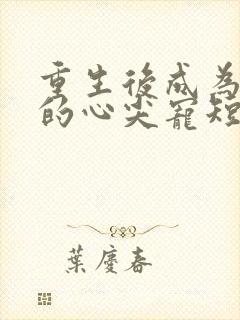 重生後成為
的心尖寵短
葉慶春